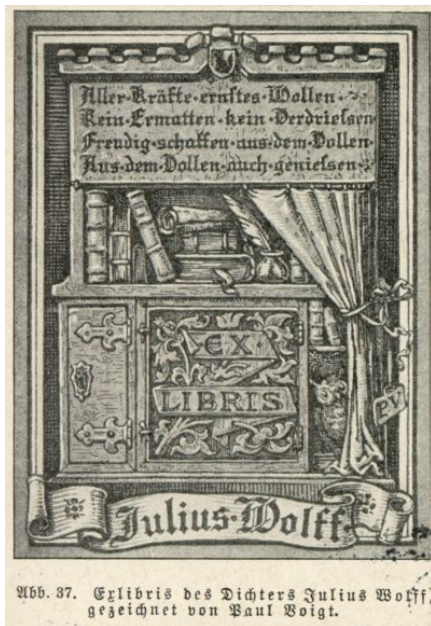 Aller·Kräfte·ernstes·Wollen·
Kein·Ermatten·kein·Verdriessen
Freudig·schaffen·aus·dem·Vollen·
Aus·dem·Vollen·auch·geniessen·
EX
LIBRIS
PV
Julius·Wolff·
Abb. 37. Exlibris des Dichters Julius Wolff,
gezeichnet von Paul Voigt.